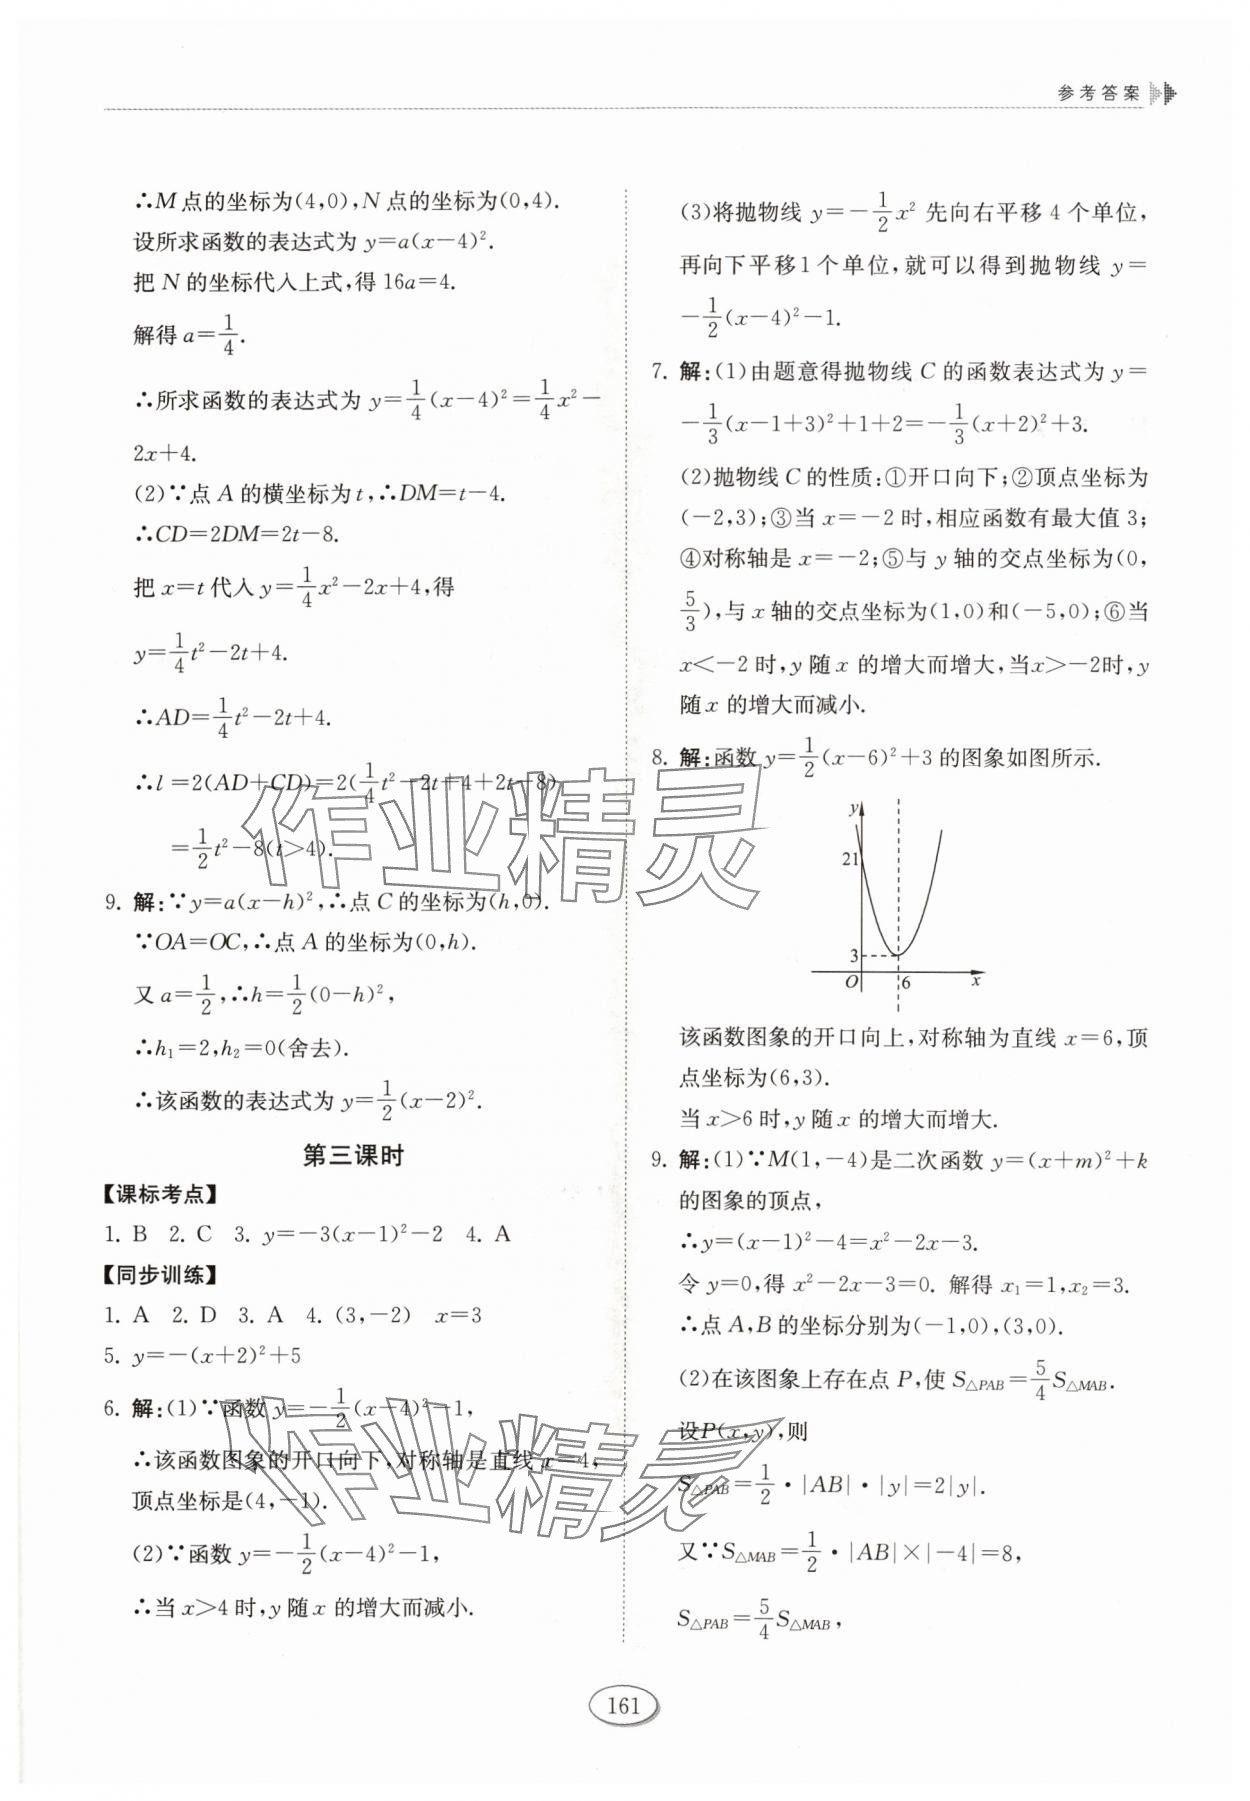 参考答案
∴M点的坐标为(4,0),N点的坐标为(0,4).
设所求函数的表达式为 y=a(x-4)².
把 N 的坐标代入上式,得 16a=4.
解得 a=1/4.
∴所求函数的表达式为 y=1/4(x-4)²=1/4x²-
2x+4.
(2)∵点 A 的横坐标为 t,∴DM=t-4.
∴CD=2DM=2t-8.
把 x=t 代入 y=1/4x²-2x+4,得
y=1/4t²-2t+4.
∴AD=1/4t²-2t+4.
∴l=2(AD+CD)=2(1/4t²-2t+4+2t-8)
=1/2t²-8(t>4).
9. 解:∵y=a(x-h)²,∴点 C 的坐标为(h,0).
∵OA=OC,∴点 A 的坐标为(0,h).
又 a=1/2,∴h=1/2(0-h)²,
∴h₁=2,h₂=0(舍去).
∴该函数的表达式为 y=1/2(x-2)².
第三课时
【课标考点】
1. B 2. C 3. y=-3(x-1)²-2 4. A
【同步训练】
1. A 2. D 3. A 4. (3,-2) x=3
5. y=-(x+2)²+5
6. 解:(1)∵函数 y=-1/2(x-4)²-1,
∴该函数图象的开口向下,对称轴是直线 x=4,
顶点坐标是(4,-1).
(2)∵函数 y=-1/2(x-4)²-1,
∴当 x>4 时,y 随 x 的增大而减小.
(3)将抛物线 y=-1/2x² 先向右平移 4 个单位,
再向下平移1个单位,就可以得到抛物线 y=
-1/2(x-4)²-1.
7. 解:(1)由题意得抛物线 C 的函数表达式为 y=
-1/3(x-1+3)²+1+2=-1/3(x+2)²+3.
(2)抛物线 C 的性质:①开口向下;②顶点坐标为
(-2,3);③当 x=-2 时,相应函数有最大值 3;
④对称轴是 x=-2;⑤与 y 轴的交点坐标为(0,
5/3),与 x 轴的交点坐标为(1,0)和(-5,0);⑥当
x<-2 时,y 随 x 的增大而增大,当x>-2时,y
随 x 的增大而减小.
8. 解:函数 y=1/2(x-6)²+3 的图象如图所示.
y
21
3
O 6 x
该函数图象的开口向上,对称轴为直线 x=6,顶
点坐标为(6,3).
当 x>6 时,y 随 x 的增大而增大.
9. 解:(1)∵M(1,-4)是二次函数 y=(x+m)²+k
的图象的顶点,
∴y=(x-1)²-4=x²-2x-3.
令 y=0,得 x²-2x-3=0. 解得 x₁=1,x₂=3.
∴点 A,B 的坐标分别为(-1,0),(3,0).
(2)在该图象上存在点 P,使 S△PAB=5/4S△MAB.
设P(x,y),则
S△PAB=1/2·|AB|·|y|=2|y|.
又∵S△MAB=1/2·|AB|×|-4|=8,
S△PAB=5/4S△MAB,
161
作业精灵
作业精灵